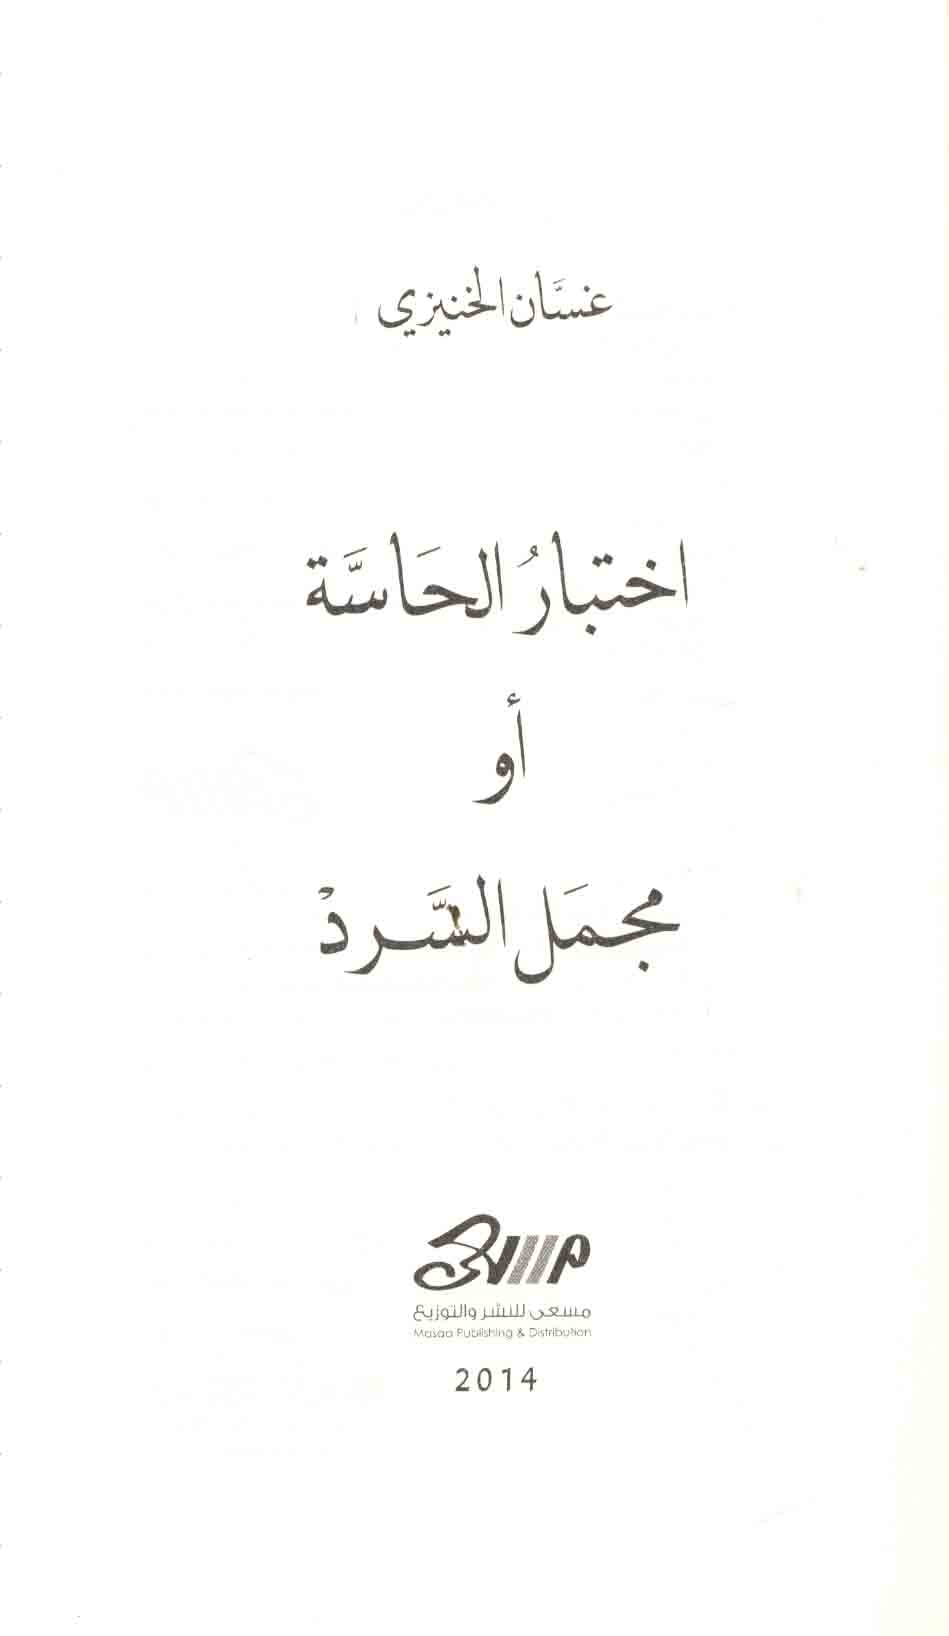 غسَّان الخنيزي
اختبارُ الحَاسَّة
أو
مجمَل السَّردْ
مسعى
مسعى للنشر والتوزيع
Masaa Publishing & Distribution
2014